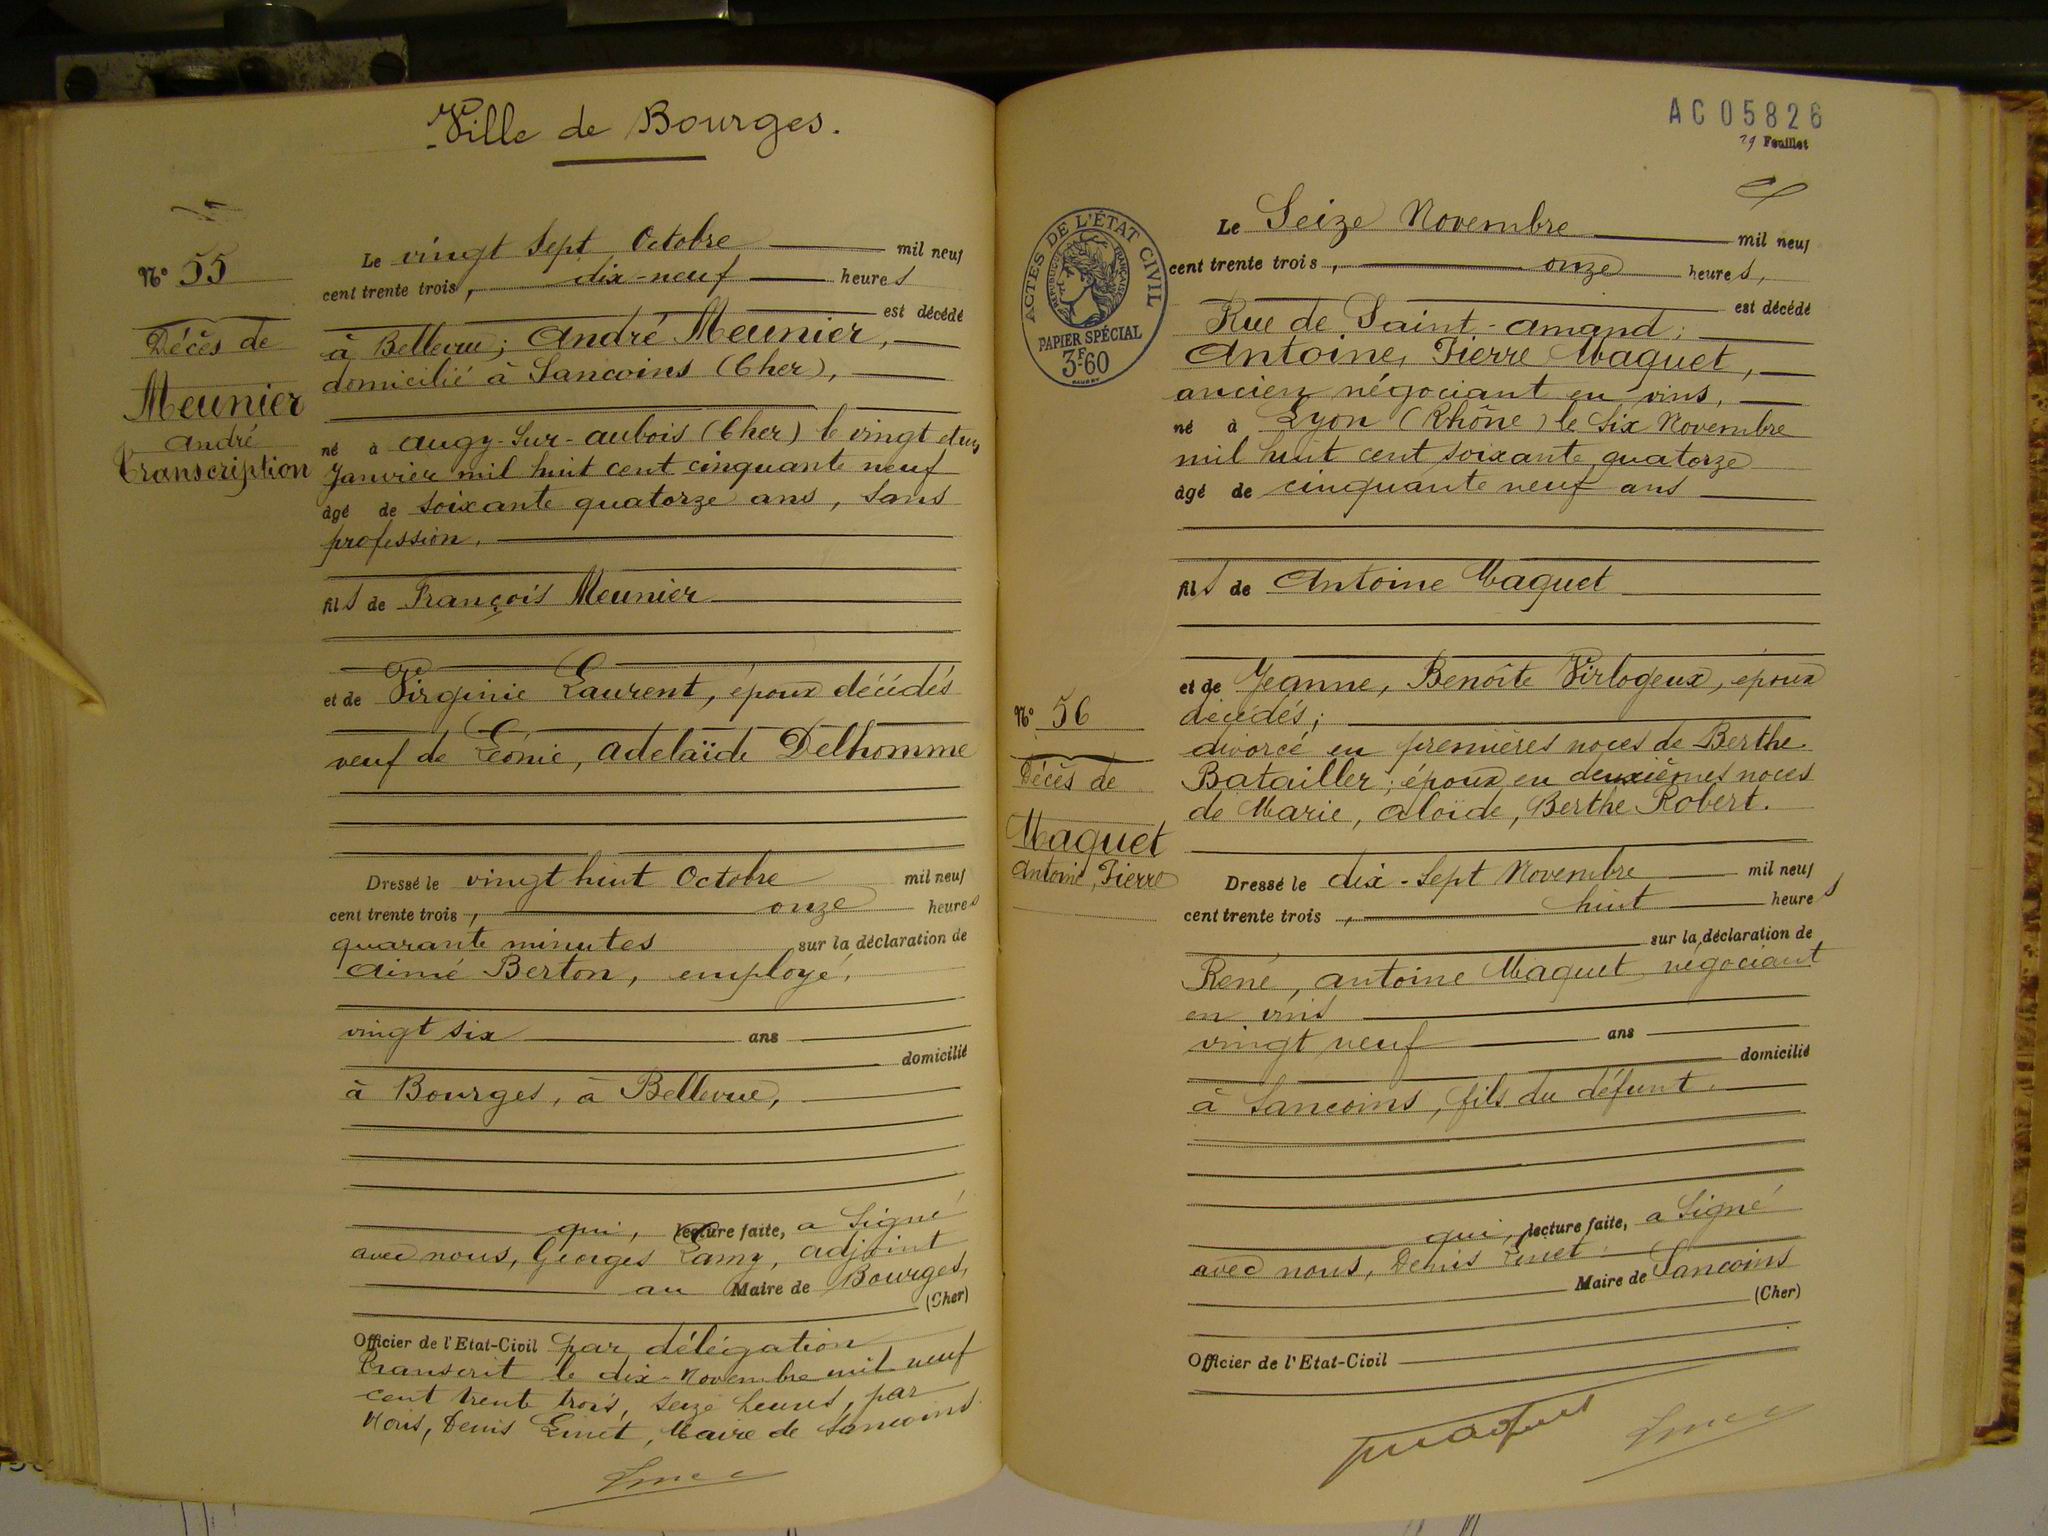 Ville de Bourges.
N° 55
Décès de
Meunier
André
Transcription
Le vingt sept Octobre mil neuf
cent trente trois, dix-neuf heures
est décédé
à Bellevue; André Meunier,
domicilié à Sancoins (Cher),
né à Augy-Sur-Aubois (Cher) le vingt et un
Janvier mil huit cent cinquante neuf
âgé de soixante quatorze ans, sans
profession.
fils de François Meunier
et de Virginie Laurent, époux décédés
veuf de Léonie, Adelaïde Delhomme
Dressé le vingt huit Octobre mil neuf
cent trente trois, onze heures
quarante minutes sur la déclaration de
Aimé Berton, employé,
vingt six ans
domicilié
à Bourges, à Bellevue,
qui, lecture faite, a signé
avec nous, Georges Lamy, adjoint
au Maire de Bourges,
(Cher)
Officier de l'Etat-Civil par délégation
Transcrit le dix-Novembre mil neuf
cent trente trois, seize heures, par
Nous, Denis Linet, Maire de Sancoins.
AC05826
29 Feuillet
ACTES DE L'ÉTAT CIVIL
RÉPUBLIQUE FRANÇAISE
PAPIER SPÉCIAL
3F.60
N° 56
Décès de
Maquet
Antoine, Pierre
Le Seize Novembre mil neuf
cent trente trois, onze heures,
est décédé
Rue de Saint-Amand;
Antoine, Pierre Maquet,
ancien négociant en vins,
né à Lyon (Rhône) le six Novembre
mil huit cent soixante quatorze
âgé de cinquante neuf ans
fils de Antoine Maquet
et de Jeanne, Benoîte Virlogeux, époux
décédés;
divorcé en premières noces de Berthe
Batailler; époux en deuxièmes noces
de Marie, Aloïde, Berthe Robert.
Dressé le dix-sept Novembre mil neuf
cent trente trois, huit heures
sur la déclaration de
René, Antoine Maquet, négociant
en vins
vingt neuf ans
domicilié
à Sancoins, fils du défunt.
qui, lecture faite, a signé
avec nous, Denis Linet
Maire de Sancoins
(Cher)
Officier de l'Etat-Civil
Maquet